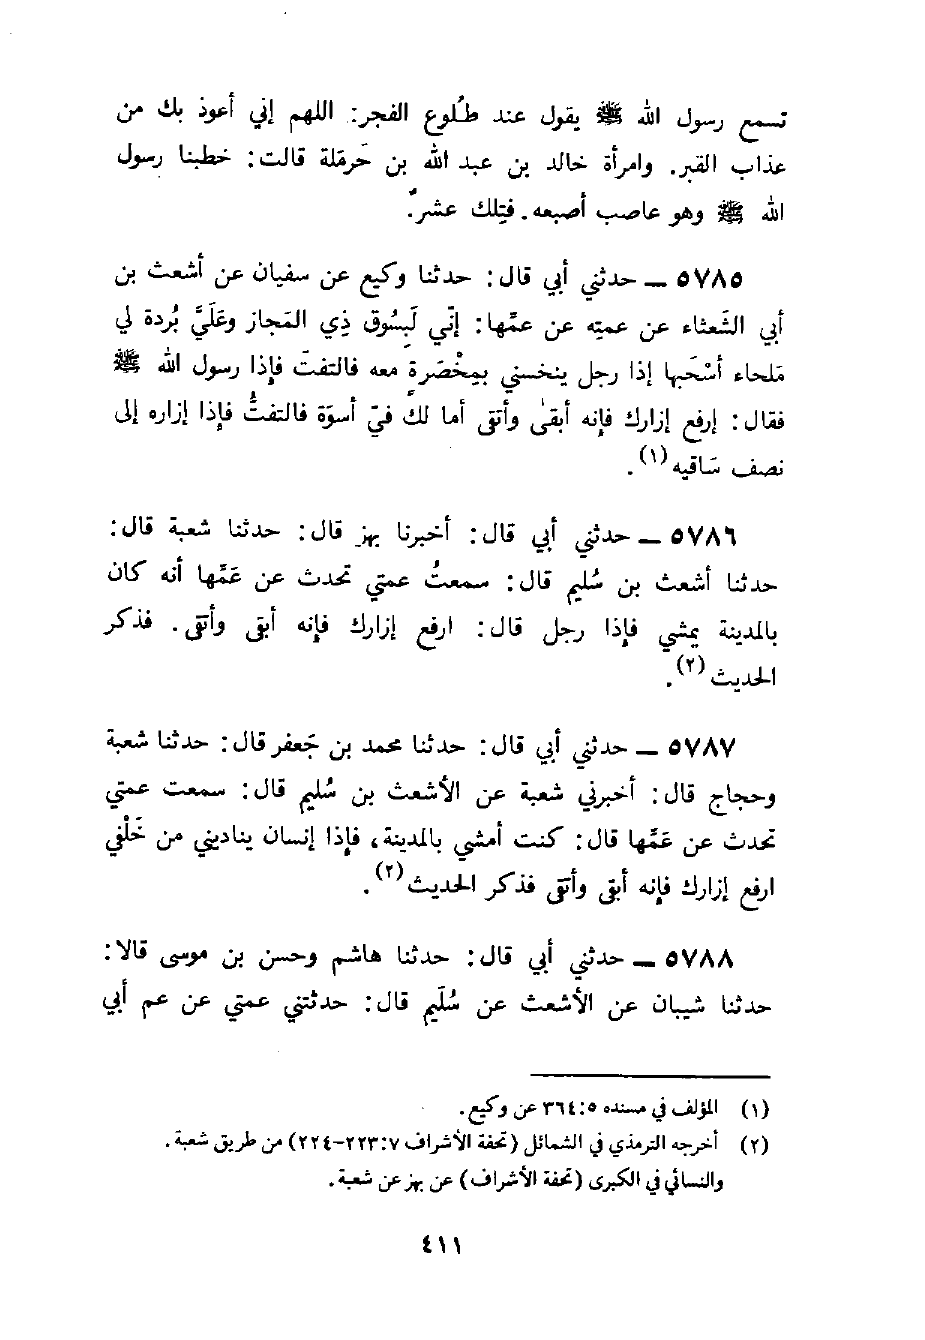 تسمع رسول الله ﷺ يقول عند طلُوع الفجر: اللهم إني أعوذ بك من
عذاب القبر. وامرأة خالد بن عبد الله بن حَرمَلة قالت: خطبنا رسول
الله ﷺ وهو عاصب أصبعه. فتِلك عشرٌ.
٥٧٨٥ ــ حدثني أبي قال: حدثنا وكيع عن سفيان عن أشعث بن
أبي الشَعثاء عن عمته عن عمِّها: إنّي لَبِسُوق ذِي المَجاز وعَلَيَّ بُردة لي
مَلحاء أسْحَبها إذا رجل ينخسني بمِخْصَرةٍ معه فالتفتّ فإذا رسول الله ﷺ
فقال: إرفع إزارك فإنه أبقىٰ وأتقى أما لكَ فيّ أسوَة فالتفتُّ فإذا إزاره إلى
نصف سَاقيه (١).
٥٧٨٦ ــ حدثني أبي قال: أخبرنا بهز قال: حدثنا شعبة قال:
حدثنا أشعث بن سُليم قال: سمعتُ عمتي تحدث عن عَمِّها أنه كان
بالمدينة يمشي فإذا رجل قال: ارفع إزارك فإنه أبقى وأتقى. فذكر
الحديث (٢).
٥٧٨٧ ــ حدثني أبي قال: حدثنا محمد بن جَعفر قال: حدثنا شعبة
وحجاج قال: أخبرني شعبة عن الأشعث بن سُليم قال: سمعت عمتي
تحدث عن عَمِّها قال: كنت أمشي بالمدينة، فإذا إنسان يناديني من خَلْفي
ارفع إزارك فإنه أبقى وأتقى فذكر الحديث (٢).
٥٧٨٨ ــ حدثني أبي قال: حدثنا هاشم وحسن بن موسى قالا:
حدثنا شيبان عن الأشعث عن سُلَيم قال: حدثتني عمتي عن عم أبي
(١) المؤلف في مسنده ٥:٣٦٤ عن وكيع.
(٢) أخرجه الترمذي في الشمائل (تحفة الأشراف ٧:٢٢٣-٢٢٤) من طريق شعبة.
والنسائي في الكبرى (تحفة الأشراف) عن بهز عن شعبة.
٤١١